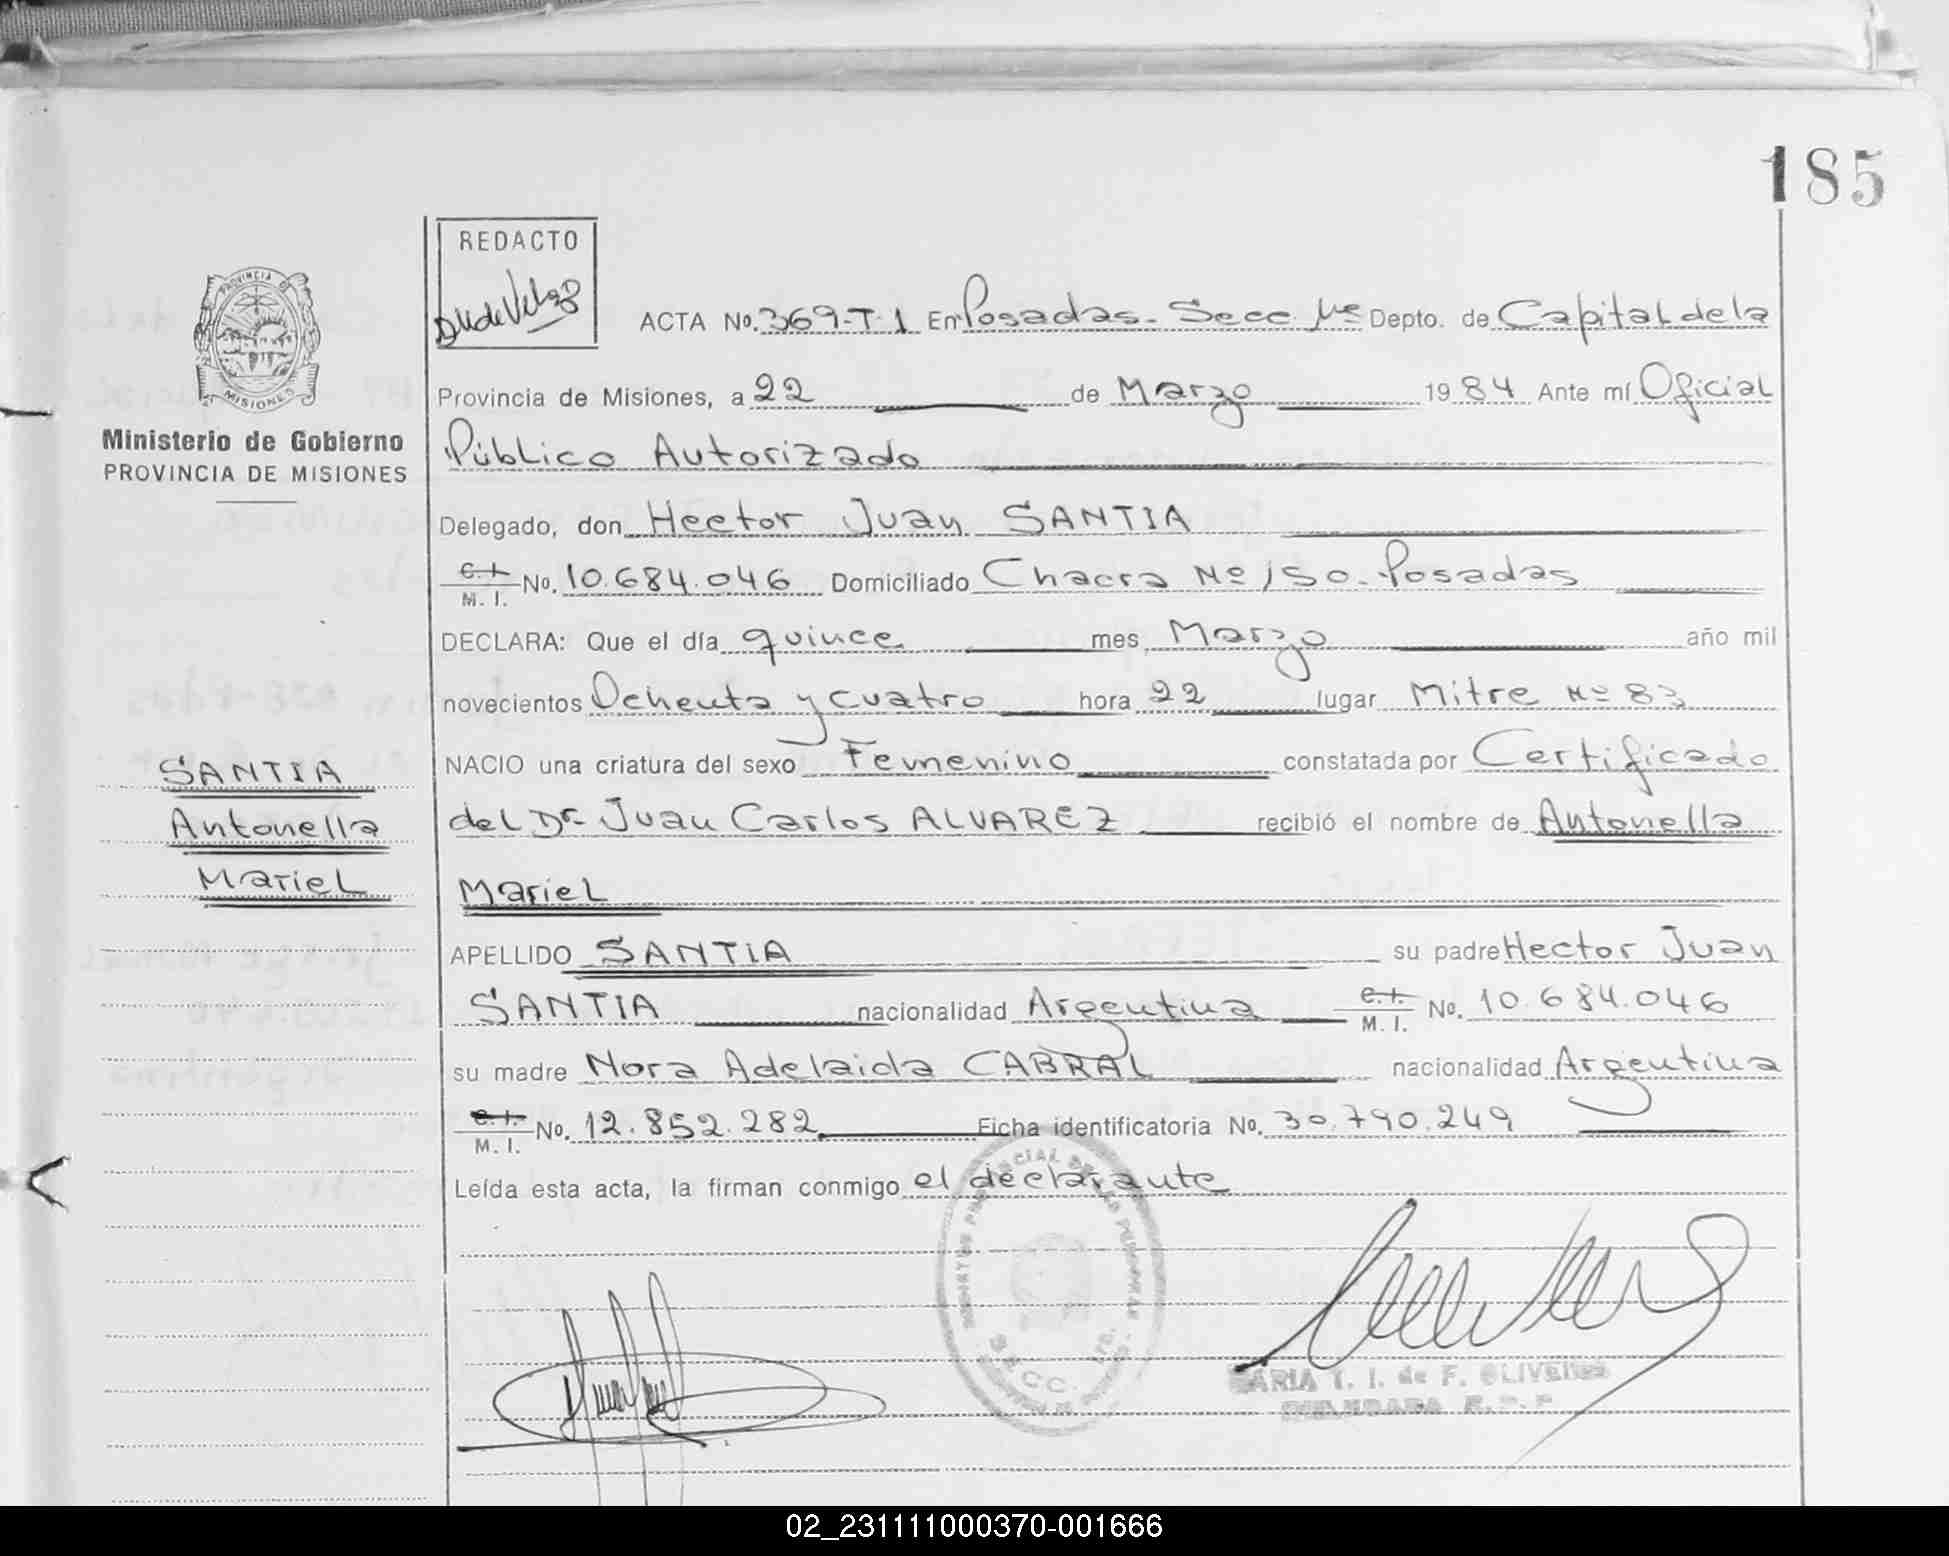 185
REDACTO
PROVINCIA DE
MISIONES
Ministerio de Gobierno
PROVINCIA DE MISIONES
ACTA No. 369-T-1 En Posadas- Secc. 1ra Depto. de Capital de la
Provincia de Misiones, a 22 de Marzo 1984 Ante mí Oficial
Público Autorizado
Delegado, don Hector Juan SANTIA
C.I. M. I. No. 10.684.046 Domiciliado Chacra Nº 150. Posadas
DECLARA: Que el día quince mes Marzo año mil
novecientos Ochenta y cuatro hora 22 lugar Mitre Nº 83
NACIO una criatura del sexo Femenino constatada por Certificado
del Dr. Juan Carlos ALVAREZ recibió el nombre de Antonella
Mariel
SANTIA
Antonella
Mariel
APELLIDO SANTIA su padre Hector Juan
SANTIA nacionalidad Argentina C.I. M. I. No. 10.684.046
su madre Nora Adelaida CABRAL nacionalidad Argentina
C.I. M. I. No. 12.852.282 Ficha identificatoria No. 30.790.249
Leída esta acta, la firman conmigo el declarante
SECC.
MARIA T. I. de F. OLIVERA
02_231111000370-001666